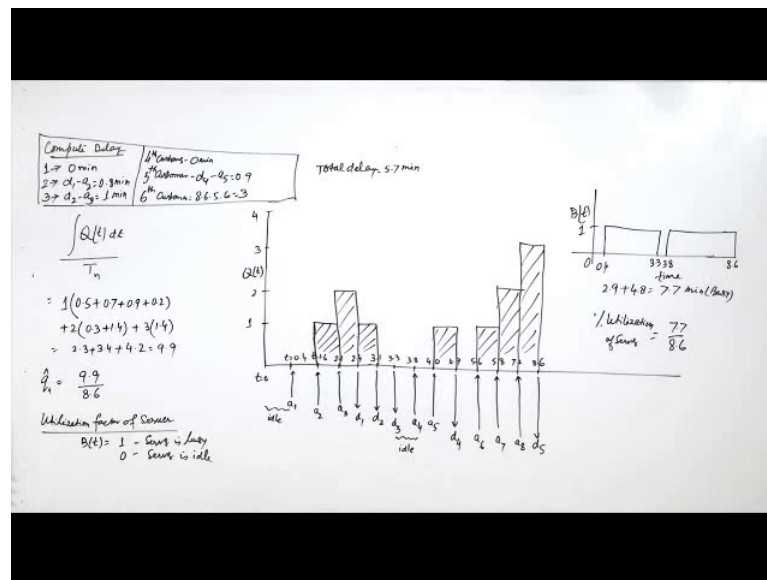 Compute Delay
1→ 0 min
2→ d₁-a₂=0.8min
3→ d₂-a₃= 1 min
4th Customer - 0min
5th Customer - d₄-a₅=0.9
6th Customer = 8.6-5.6=3
Total delay = 5.7 min
∫Q(t) dt
Tn
= 1(0.5+0.7+0.9+0.2)
+2(0.3+1.4) + 3(1.4)
= 2.3+3.4+4.2=9.9
= 9.9
8.6
Utilization factor of Server
B(t)= 1 - Server is busy
0 - Server is idle
4
3
Q(t)
2
1
t=0
t=0.4 1.6 2.1 2.4 3.1 3.3 3.8 4.0 4.9 5.6 5.8 7.2 8.6
idle
a₁ a₂ a₃ d₁ d₂ d₃ a₄ a₅ d₄ a₆ a₇ a₈ d₅
idle
B(t)
1
0 0.4 3.3 3.8 8.6
time
2.9+4.8= 7.7 min(Busy)
% Utilization
of Server
= 7.7
8.6